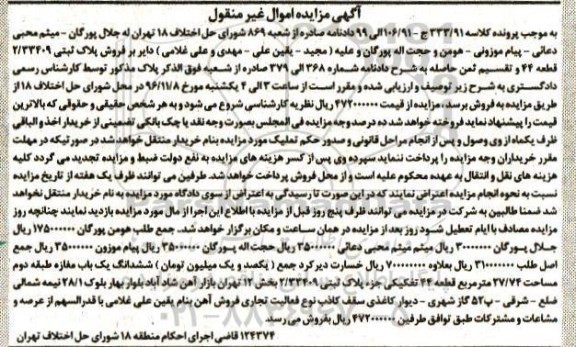 آگهی مزایده اموال غیر منقول
به موجب پرونده کلاسه ۳۳۳/۹۱ ج - ۱۰۶/۹۱الی ۹۹ دادنامه صادره از شعبه ۸۶۹ شورای حل اختلاف ۱۸ تهران له جلال پورگان - میثم محبی
دعائی - پیام موزونی - هومن و حجت اله پورگان و علیه (مجید - یقین علی - مهدی و علی غلامی) دایر بر فروش پلاک ثبتی ۲/۳۳۴۰۹
قطعه ۴۴ و تقسیم ثمن حاصله به شرح دادنامه شماره ۳۶۸ الی ۳۷۹ صادره از شعبه فوق الذکر پلاک مذکور توسط کارشناس رسمی
دادگستری به شرح زیر توصیف و ارزیابی شده و مقرر است از ساعت ۳ الی ۴ یکشنبه مورخ ۹۶/۱۱/۸ در محل شورای حل اختلاف ۱۸ از
طریق مزایده به فروش برسد، مزایده از قیمت ۴۷۲۰۰۰۰۰۰ ریال نظریه کارشناسی شروع می‌شود و به هر شخص حقیقی و حقوقی که بالاترین
قیمت را پیشنهاد نماید فروخته خواهد شد ده درصد وجه مزایده فی المجلس بصورت وجه نقد یا چک بانکی تضمینی از خریدار اخذ و الباقی
ظرف یکماه از وی وصول و پس از انجام مراحل قانونی و صدور حکم تملیک مورد مزایده بنام خریدار منتقل خواهد شد در صورتیکه در مهلت
مقرر خریداران وجه مزایده را پرداخت ننماید سپرده وی پس از کسر هزینه های مزایده به نفع دولت ضبط و مزایده تجدید می گردد کلیه
هزینه های نقل و انتقال به عهده محکوم علیه است و از محل فروش پرداخت خواهد شد. طرفین می توانند ظرف یک هفته از تاریخ مزایده
نسبت به نحوه انجام مزایده اعتراض نمایند که در این صورت تا رسیدگی به اعتراض از سوی دادگاه مورد مزایده به نام خریدار منتقل نخواهد
شد ضمنا طالبین به شرکت در مزایده می توانند ظرف پنج روز قبل از مزایده با اطلاع این اجرا از مال مورد مزایده بازدید نمایند چنانچه روز
مزایده مصادف با ایام تعطیل شود روز بعد از مزایده در همان ساعت و مکان برگزار خواهد شد. جمع طلب هومن پورگان ۱۷۵۰۰۰۰۰۰ ریال
جلال پورگان ۳۰۰۰۰۰۰۰ ریال میثم میثم محبی دعائی ۳۵۰۰۰۰۰۰ ریال حجت اله پورگان ۳۵۰۰۰۰۰۰ ریال پیام موزون ۳۵۰۰۰۰۰۰ ریال جمع
اصل طلب ۳۱۰۰۰۰۰۰۰ ریال بعلاوه ۷۰۰۰۰۰۰۰۰ ریال خسارت دیرکرد جمع (یکصد و یک میلیون تومان) ششدانگ یک باب مغازه طبقه دوم
مساحت ۲۷/۷۴ مترمربع قطعه ۴۴ تفکیکی جزء پلاک ثبتی ۲/۳۳۴۰۹ بخش ۱۲ تهران بازار آهن شاد آباد بلوار بهار بلوک ۲۸/۱ نیمه شمالی
ضلع - شرقی - پ۵۲ گاز شهری - دیوار کاغذی سقف کاذب نوع فعالیت تجاری فروش آهن بنام یقین علی غلامی با قدرالسهم از عرصه و
مشاعات و مشترکات طبق توافق طرفین ۴۷۲۰۰۰۰۰۰ ریال بفروش می رسد.
۱۲۴۳۷۴ قاضی اجرای احکام منطقه ۱۸ شورای حل اختلاف تهران